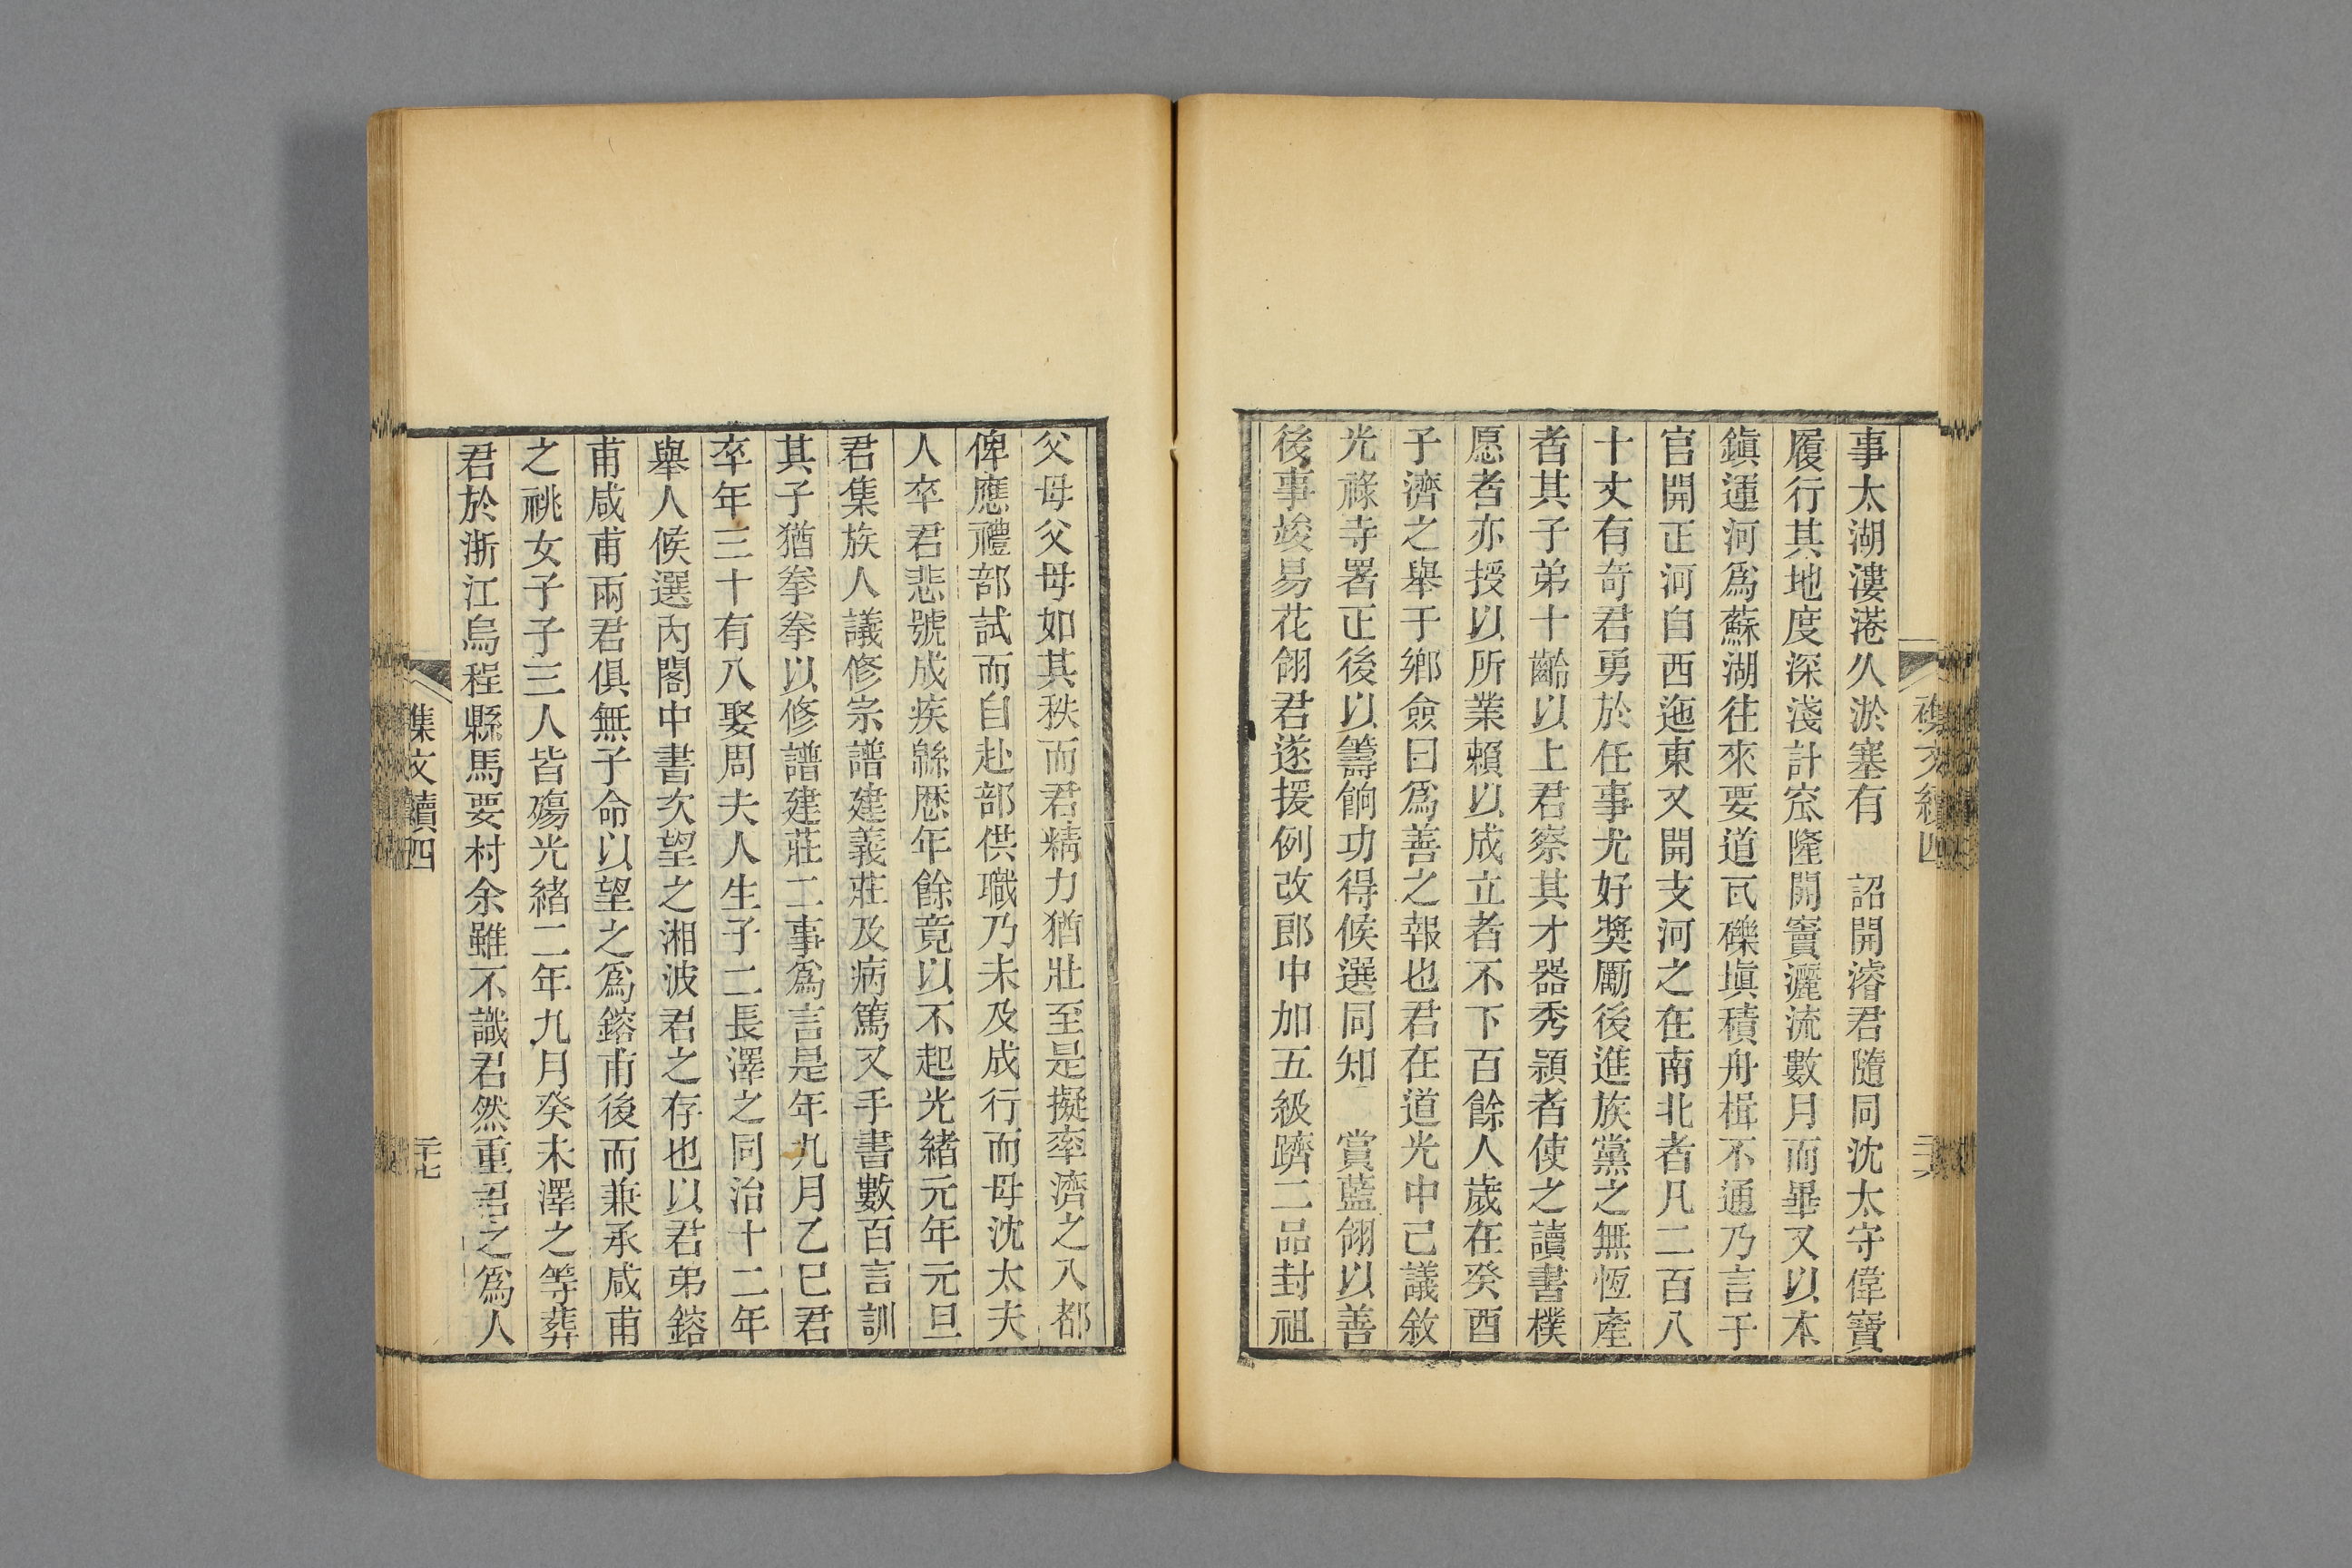 事太湖漊港久淤塞有　詔開濬君隨同沈太守偉寶
履行其地度深淺計窊隆開竇灑流數月而畢又以本
鎭運河爲蘇湖往來要道瓦礫塡積舟楫不通乃言于
官開正河自西迤東又開支河之在南北者凡二百八
十丈有奇君勇於任事尤好獎勵後進族黨之無恆產
者其子弟十齡以上君察其才器秀穎者使之讀書樸
愿者亦授以所業賴以成立者不下百餘人歲在癸酉
子濟之舉于鄉僉曰爲善之報也君在道光中己議敘
光祿寺署正後以籌餉功得候選同知　賞藍翎以善
後事竣易花翎君遂援例改郎中加五級躋二品封祖
父母父母如其秩而君精力猶壯至是擬率濟之入都
俾應禮部試而自赴部供職乃未及成行而母沈太夫
人卒君悲號成疾緜歷年餘竟以不起光緒元年元旦
君集族人議修宗譜建義莊及病篤又手書數百言訓
其子猶拳拳以修譜建莊二事爲言是年九月乙巳君
卒年三十有八娶周夫人生子二長澤之同治十二年
舉人候選內閣中書次望之湘波君之存也以君弟鎔
甫咸甫兩君俱無子命以望之爲鎔甫後而兼承咸甫
之祧女子子三人皆殤光緒二年九月癸未澤之等葬
君於浙江烏程縣馬要村余雖不識君然重君之爲人
集文續四
二十七